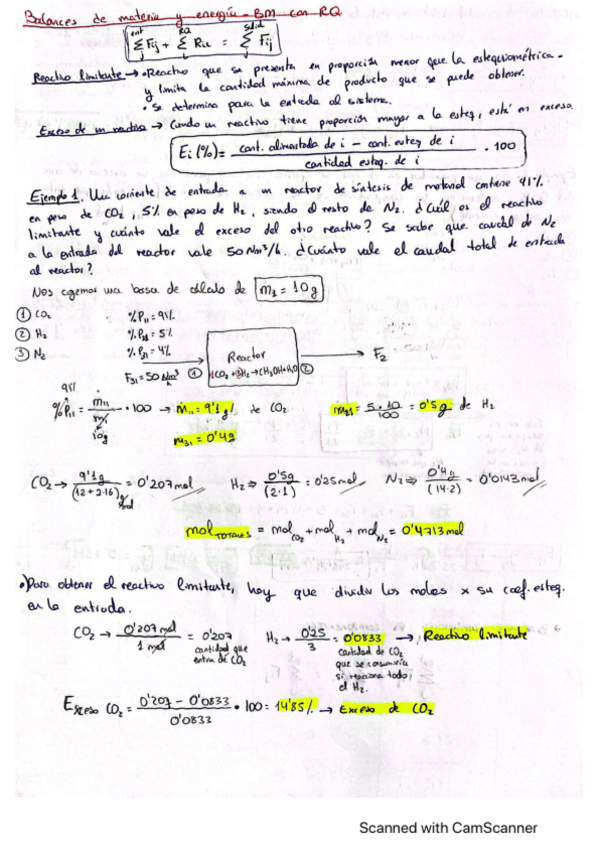 Balances de materia y energía - BM con RQ
ent RQ salid
Σ Fij + Σ Rik = Σ Fij
j k j
Reactivo limitante → • Reactivo que se presenta en proporción menor que la estequiométrica.
y limita la cantidad máxima de producto que se puede obtener.
• Se determina para la entrada al sistema.
Exceso de un reactivo → Cuando un reactivo tiene proporción mayor a la esteq, esté en exceso.
Ei (%) = cant. alimentada de i - cant. esteq de i / cantidad esteq. de i · 100
Ejemplo 1. Una corriente de entrada a un reactor de síntesis de metanol contiene 91%
en peso de CO2, 5% en peso de H2, siendo el resto de N2. ¿Cuál es el reactivo
limitante y cuánto vale el exceso del otro reactivo? Se sabe que caudal de N2
a la entrada del reactor vale 50 Nm³/h. ¿Cuánto vale el caudal total de entrada
al reactor?
Nos cogemos una base de cálculo de m1 = 10g
① CO2 %P11 = 91%
② H2 %P21 = 5%
③ N2 %P31 = 4%
F31 = 50 Nm³/h ①
Reactor
CO2 + 3H2 → CH3OH + H2O ②
F2
91%
%P11 = m11/m1 · 100 → m11 = 9'1g de CO2 m21 = 5·10/100 = 0'5g de H2
10g
m31 = 0'4g
CO2 → 9'1g/(12+2·16)g/mol = 0'207mol H2 ⇒ 0'5g/(2·1) = 0'25mol N2 ⇒ 0'4g/(14·2) = 0'0143mol
mol TOTALES = mol CO2 + mol H2 + mol N2 = 0'4713mol
• Para obtener el reactivo limitante, hay que dividir los moles x su coef. esteq.
en la entrada.
CO2 → 0'207 mol/1 mol = 0'207 H2 → 0'25/3 = 0'0833 → Reactivo limitante
cantidad que entra de CO2
cantidad de CO2
que se consumiría
si reacciona todo
el H2.
Exceso CO2 = 0'207 - 0'0833/0'0833 · 100 = 14'85% → Exceso de CO2
Scanned with CamScanner